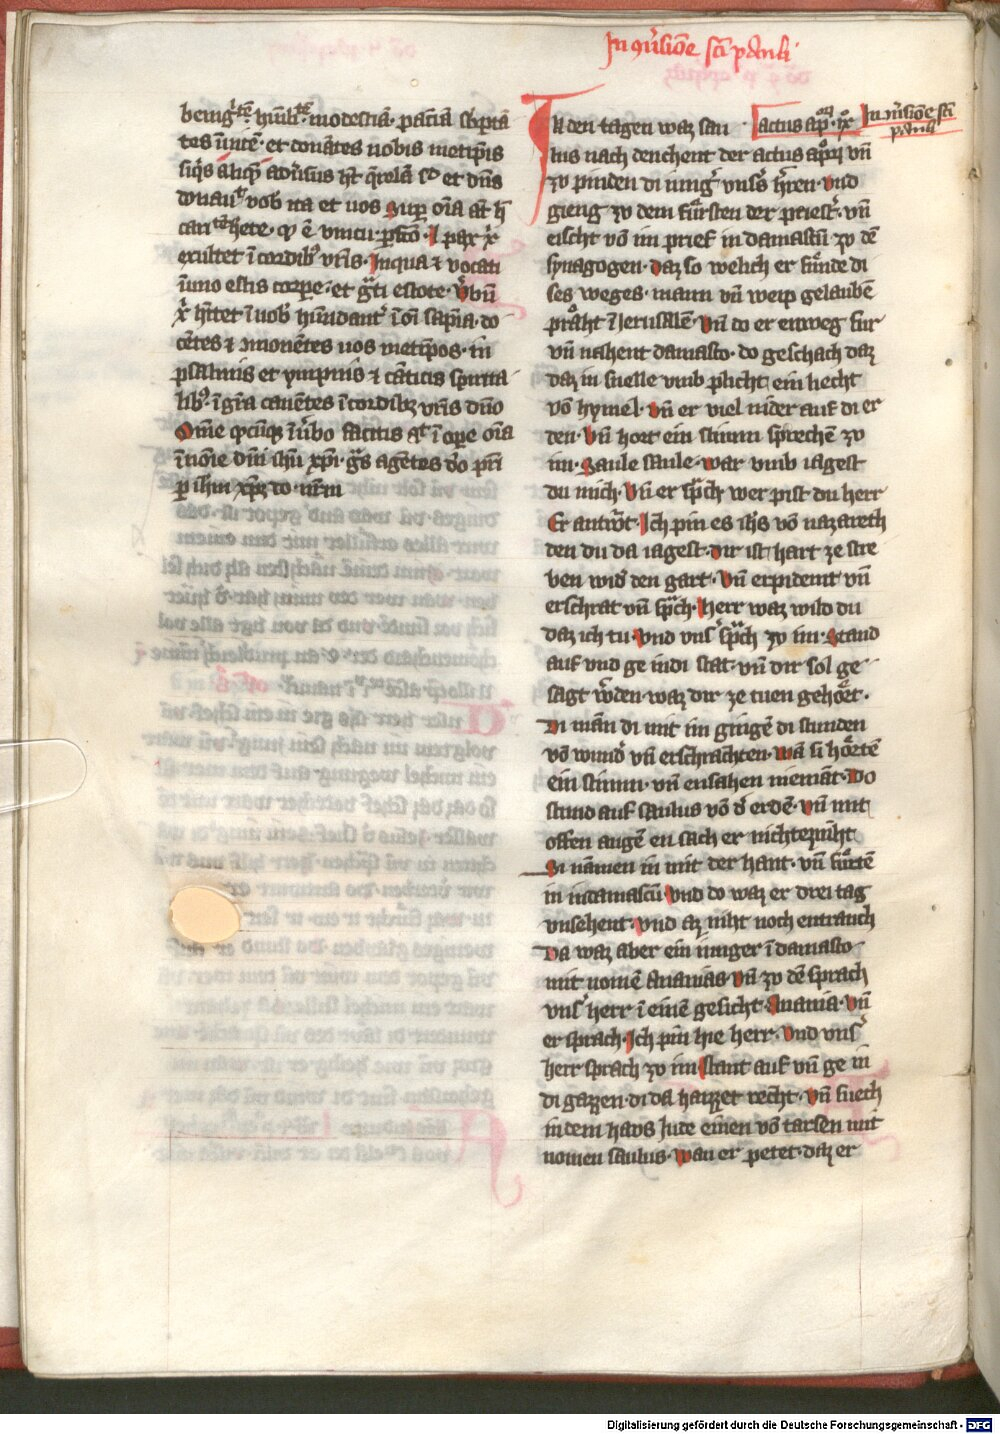 In ꝯu̾sione sci pauli
benig̾tē· hūilitē· modestiā· pacīa sbporta
tes ūitē· et donātes uobis metip̄is
siq̾s aliq̄ aduͥsus ht̄ q̄relā sͨ et dn̄s
donauͭ vob ita et uos Sup oīa at̄ h̄
caritēhete· qͥ ē vincu· pfcōis· I pax xͥ
exultet ī cordibꝰ vr̄is· In qua ⁊ vocati
ī uno estis corpe· et gͣti estote· Vͤbū
xͥ hītet ī uob habūdantͬ ī oī sapīa· do
cētes ⁊ ꝯmonētes uos metip̄os· in
psalmis et ympnis ⁊ cāticis spirita
libꝰ· ī gr̄ia cantētes ī cordibꝫ vr̄is dn̄o
Om̄e qͨcūqꝫ ī v̾bo facitis aͭ ī ope oīa
ī noīe dn̄i ihū xp̄i· gͣs agētes dō pr̄i
p ihm xp̄m do· nr̄m
In den tagen waz sau
Actus apͦꝝ· ix
In ꝯu̾sione sci
pauli
lus nach denchent der actus apͦꝝ vn̄
zv pinden di iungͬ vnsͤs h̾ren· vnd
gieng zv dem fuͤrsten der priestͬ· vn̄
eischt vō im prief in damascū zv dē
synagogen· daz so welich er fuͤnde di
ses weges· mann vn̄ weip gelaubē
praͤht ī Jerusalē· Vn̄ do er enweg fur
vn̄ nahent damasco· do geschach daz
daz in snelle vmb plicht ein liecht
vō hymel· Vn̄ er viel nider auf di er
den· Vn̄ hort ein stimm sprechē zv
im· Saule saule· war vmb iagest
du mich· Vn̄ er spͣch wer pist du herr
Er antwͤrt· Ich pin es ihs vō nazareth
den du da iagest· dir ist hart ze stre
ben wid̾ den gart· Vn̄ erpidemt vn̄
erschrat vn̄ spͣch· Herr waz wild du
daz ich tu· Vnd vnsͬ spͣch zv im· Stand
auf vnd ge in di stat· vn̄ dir sol ge
sagt w̾den· waz dir ze tuen gehoͤrt·
Di man di mit im gingē di stunden
vō wund̾ vn̄ erschrachten· wā si hoͤrtē
ein stimm· vn̄ ensahen niemāt· Do
stund auf saulus vō d̾ erdē· vn̄ mit
offen augē en sach er nichtezniht
Si namen in mit der hant· vn̄ fuͤrtē
in in damascū· Vnd do waz er drei tag
vnsehent· vnd az niht noch entranch
Da waz aber ein iunger ī damasco·
mit nomē Ananias· Vn̄ zv dē sprach
vnsͬ herr ī einē gesicht· Anania· Vn̄
er sprach· Ich pin hie herr· Vnd vnsͬ
herr sprach zv im stant auf vn̄ ge in
di gazzen· di da haizzet recht· Vn̄ suech
in dem havs Jude einen vō tarsen mit
nomen saulus· Wan er petet· daz er
Digitalisierung gefördert durch die Deutsche Forschungsgemeinschaft - DFG